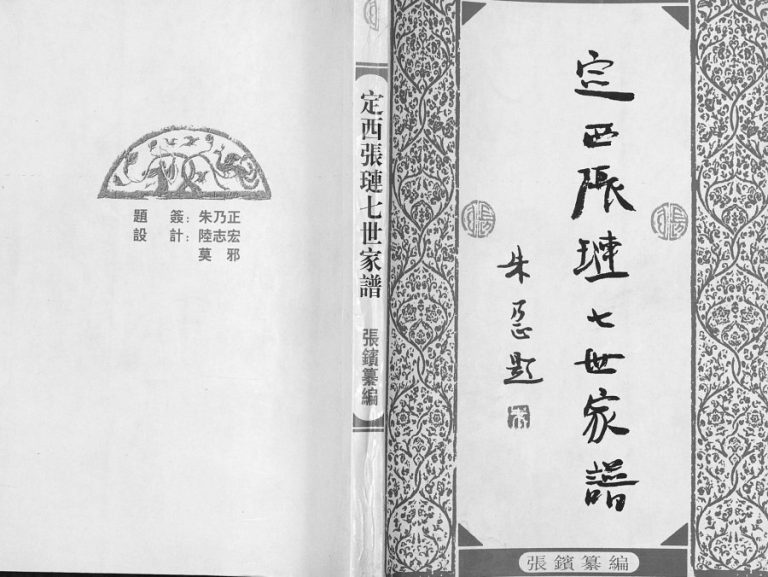 定西張璉七世家譜
朱乃正題
張鑌纂編
定西張璉七世家譜
張鑌纂編
題 簽：朱乃正
設 計：陸志宏
莫 邪